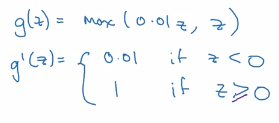 g(z) = max(0.01z, z)
g'(z) = { 0.01 if z < 0
1 if z ≥ 0